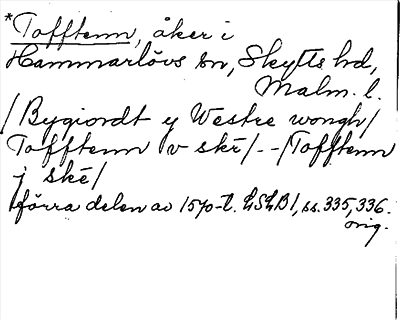 *Tofftenn, åker i
Hammarlövs sn, Skytts hd,
Malm. l.
/Bygiordt y Westre wongh/
Tofftenn v skē/--/Tofftenn
j skē/
förra delen av 1570-t. LSLB1, ss. 335, 336.
orig.